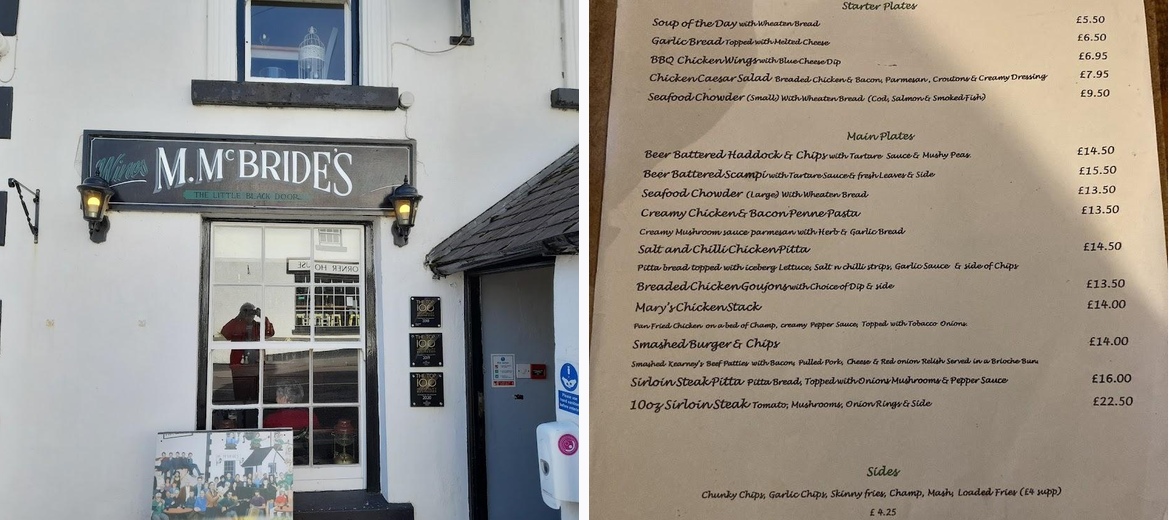 Wines
M. McBRIDE'S
THE LITTLE BLACK DOOR
ORNER HOUSE
THE TOP
100
THE TOP
100
2019
THE TOP
100
2020
Starter Plates
Soup of the Day with Wheaten Bread £5.50
Garlic Bread Topped with Melted Cheese £6.50
BBQ Chicken Wings with Blue Cheese Dip £6.95
Chicken Caesar Salad Breaded Chicken & Bacon, Parmesan, Croutons & Creamy Dressing £7.95
Seafood Chowder (Small) With Wheaten Bread (Cod, Salmon & Smoked Fish) £9.50
Main Plates
Beer Battered Haddock & Chips with Tartare Sauce & Mushy Peas. £14.50
Beer Battered Scampi with Tartare Sauce & fresh Leaves & Side £15.50
Seafood Chowder (Large) With Wheaten Bread £13.50
Creamy Chicken & Bacon Penne Pasta £13.50
Creamy Mushroom sauce parmesan with Herb & Garlic Bread
Salt and Chilli Chicken Pitta £14.50
Pitta bread topped with iceberg Lettuce, Salt n chilli strips, Garlic Sauce & side of Chips
Breaded Chicken Goujons with Choice of Dip & side £13.50
Mary's Chicken Stack £14.00
Pan Fried Chicken on a bed of Champ, creamy Pepper Sauce, Topped with Tobacco Onions.
Smashed Burger & Chips £14.00
Smashed Kearney's Beef Patties with Bacon, Pulled Pork, Cheese & Red onion Relish Served in a Brioche Bun.
Sirloin Steak Pitta Pitta Bread, Topped with Onions Mushrooms & Pepper Sauce £16.00
10oz Sirloin Steak Tomato, Mushrooms, Onion Rings & Side £22.50
Sides
Chunky Chips, Garlic Chips, Skinny fries, Champ, Mash, Loaded Fries (£4 supp)
£ 4.25